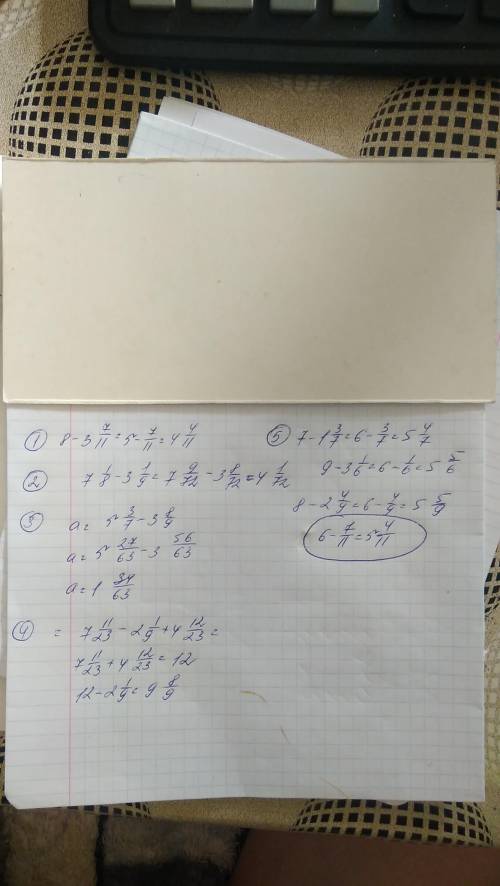 ① 8 - 3 7/11 = 5 - 7/11 = 4 4/11
② 7 1/8 - 3 1/9 = 7 9/72 - 3 8/72 = 4 1/72
③ a = 5 3/7 - 3 8/9
a = 5 27/63 - 3 56/63
a = 1 34/63
④ = 7 11/23 - 2 1/9 + 4 12/23 =
7 11/23 + 4 12/23 = 12
12 - 2 1/9 = 9 8/9
⑤ 7 - 1 3/7 = 6 - 3/7 = 5 4/7
9 - 3 1/6 = 6 - 1/6 = 5 5/6
8 - 2 4/9 = 6 - 4/9 = 5 5/9
6 - 7/11 = 5 4/11